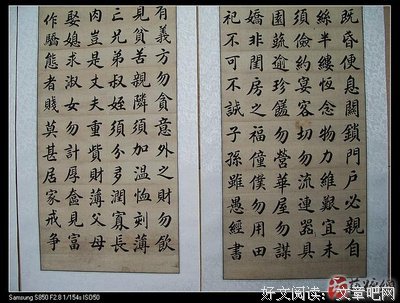 既昏便息關鎖門戶必親自
絲半縷恆念物力維艱宜未
須儉約宴客切勿流連器具
園蔬逾珍饈勿營華屋勿謀
嬌非閨房之福僮僕勿用田
祀不可不誠子孫雖愚經書
有義方勿貪意外之財勿飲
見貧苦親鄰須加溫恤刻薄
亡兄弟叔姪須分多潤寡長
肉豈是丈夫重貲財薄父母
娶媳求淑女勿計厚奩見富
作驕態者賤莫甚居家戒爭
Samsung S850 F2.8 1/154s ISO50
好文阅读：文章吧网